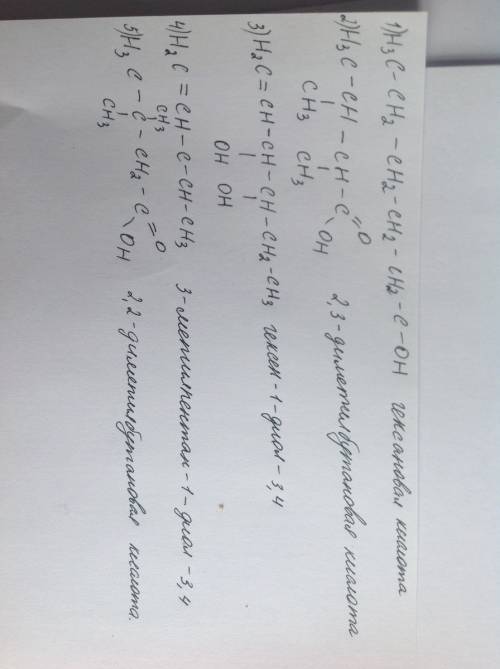 1) H3C – CH2 – CH2 – CH2 – CH2 – C – OH гексановая кислота
2) H3C – CH – CH – C =O
OH 2,3-диметилбутановая кислота
CH3 CH3
3) H2C = CH – CH – CH – CH2 – CH3 гексен-1-диол-3,4
OH OH
4) H2C = CH – C – CH – CH3 3-метилпентан-1-диол-3,4
CH3
5) H3C – C – CH2 – C = O
OH 2,2-диметилбутановая кислота.
CH3